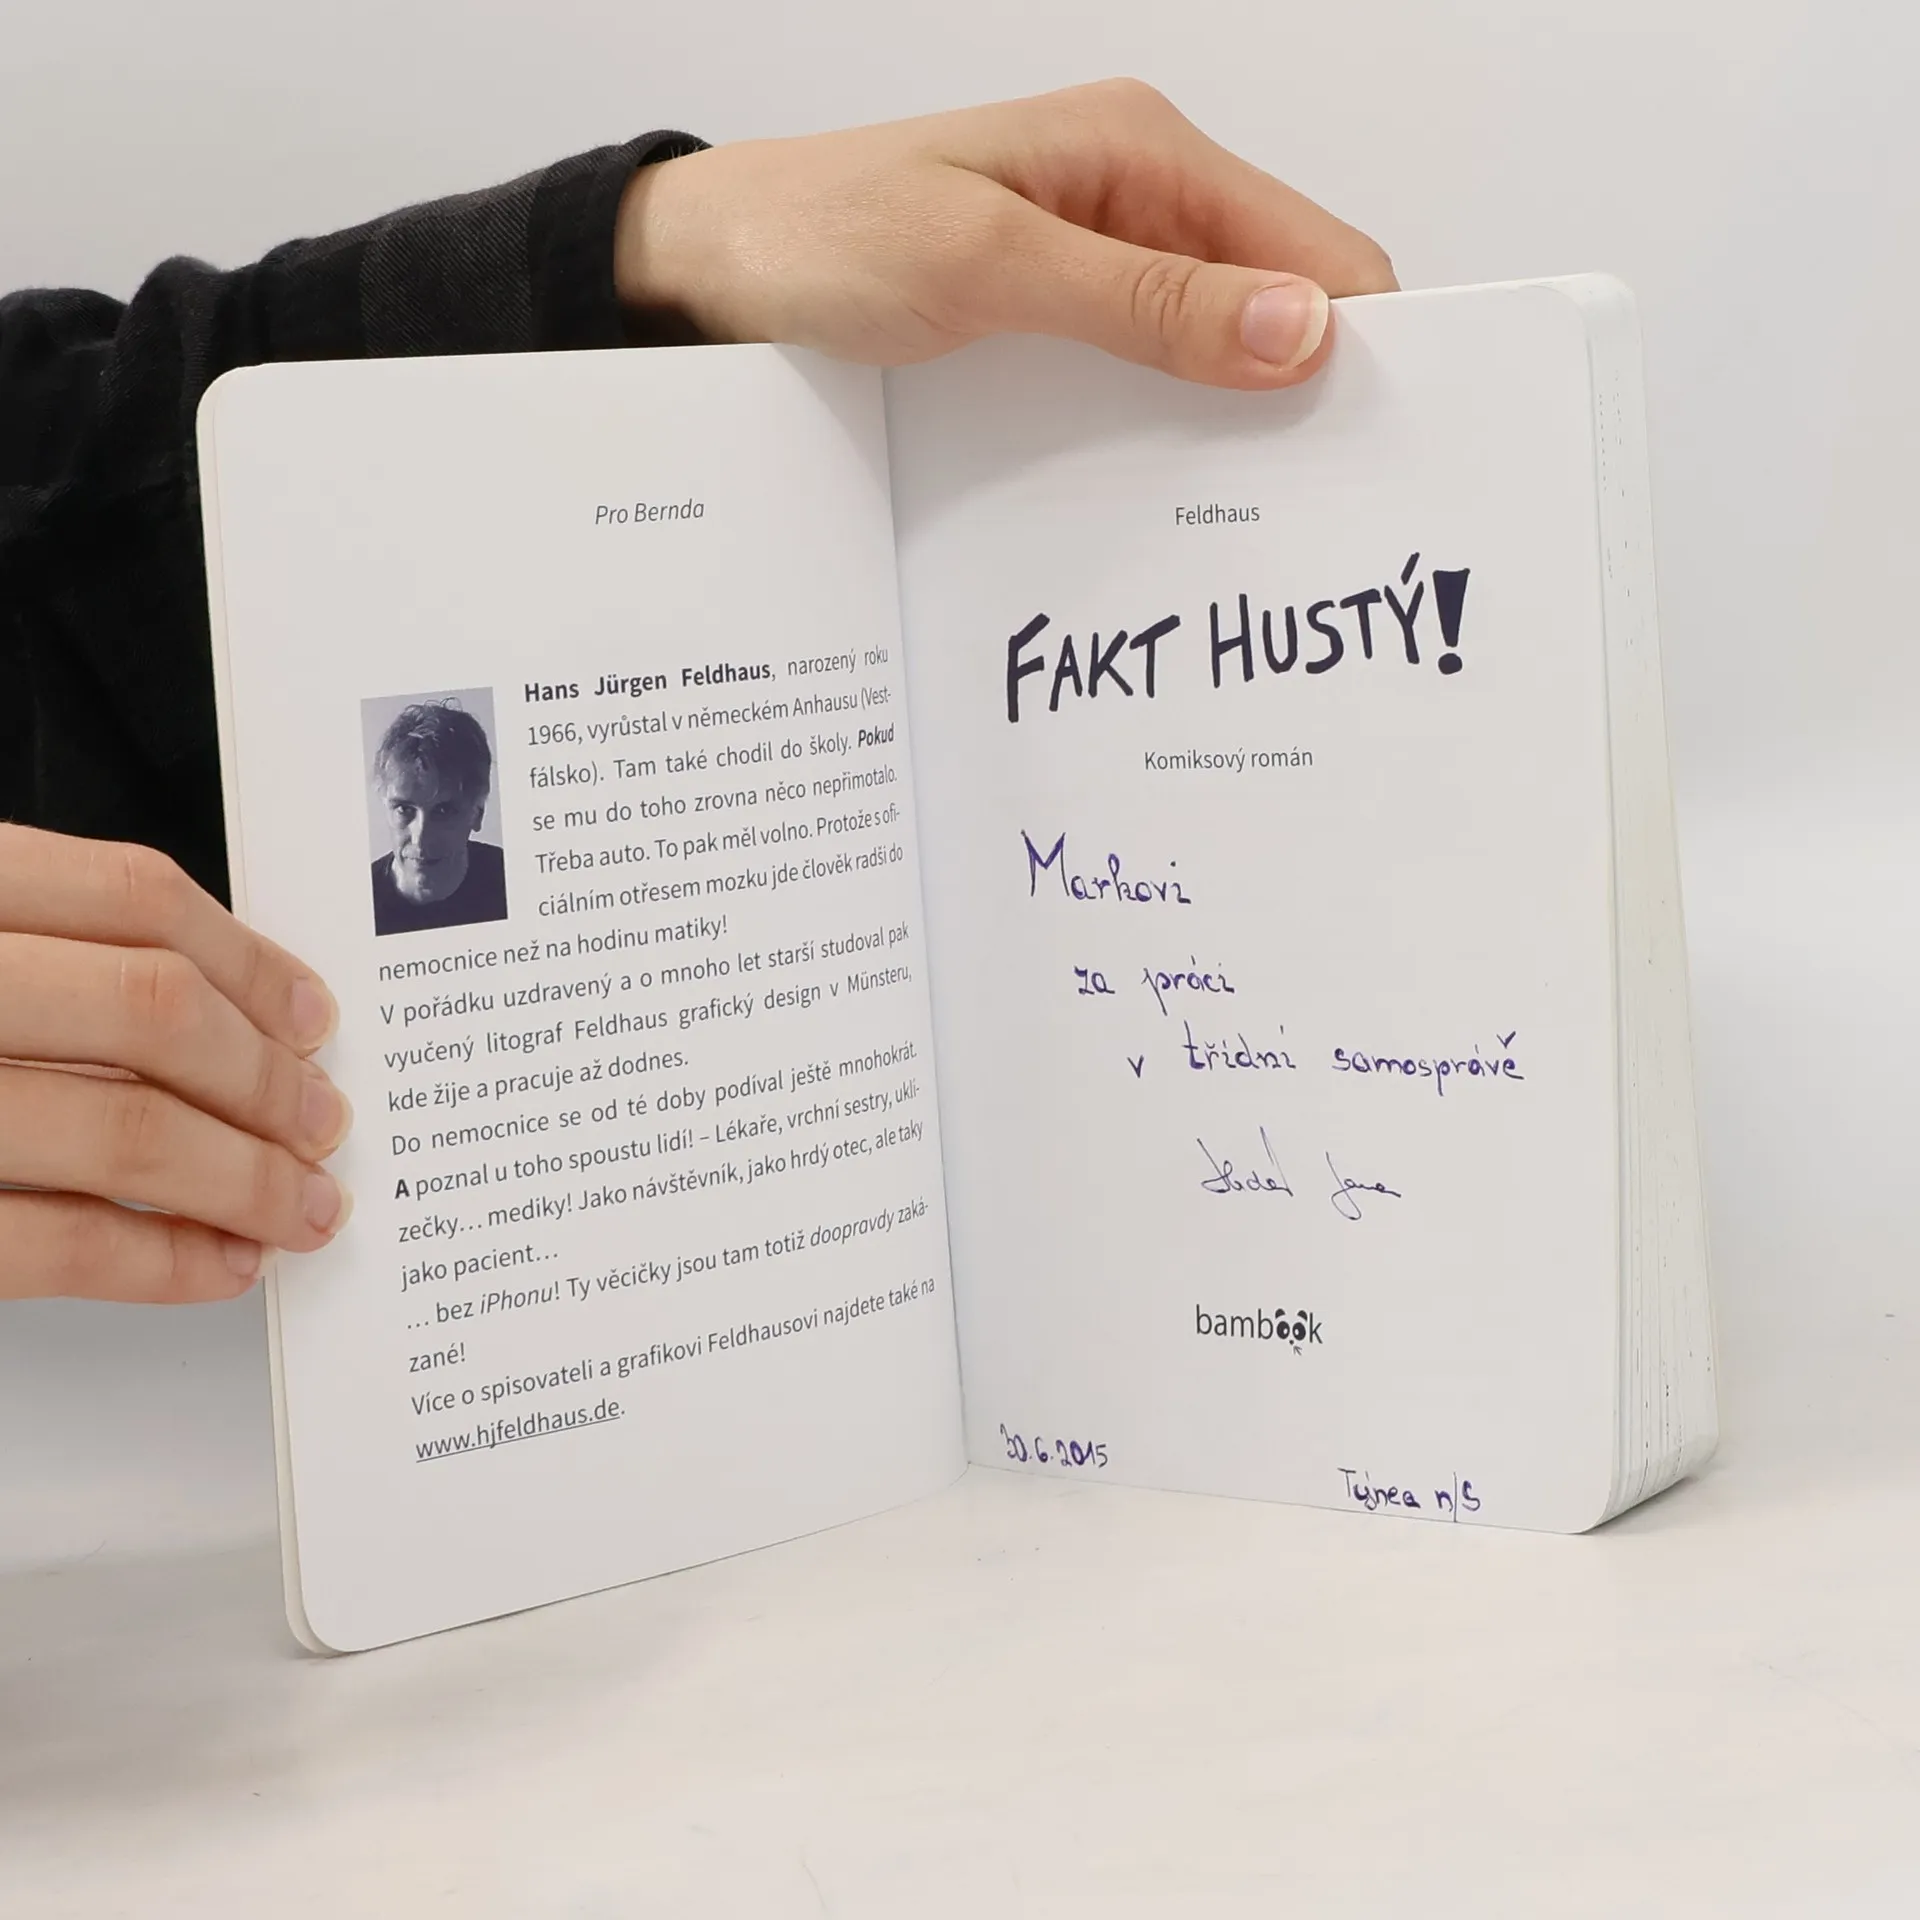 Pro Bernda
Hans Jürgen Feldhaus, narozený roku
1966, vyrůstal v německém Anhausu (Vest-
fálsko). Tam také chodil do školy. Pokud
se mu do toho zrovna něco nepřimotalo.
Třeba auto. To pak měl volno. Protože s ofi-
ciálním otřesem mozku jde člověk radši do
nemocnice než na hodinu matiky!
V pořádku uzdravený a o mnoho let starší studoval pak
vyučený litograf Feldhaus grafický design v Münsteru,
kde žije a pracuje až dodnes.
Do nemocnice se od té doby podíval ještě mnohokrát.
A poznal u toho spoustu lidí! – Lékaře, vrchní sestry, uklí-
zečky… mediky! Jako návštěvník, jako hrdý otec, ale taky
jako pacient…
… bez iPhonu! Ty věcičky jsou tam totiž doopravdy zaká-
zané!
Více o spisovateli a grafikovi Feldhausovi najdete také na
www.hjfeldhaus.de.
Feldhaus
FAKT HUSTÝ!
Komiksový román
Markovi
za práci
v třídní samosprávě
Jana
bambook
30.6.2015
Týnec n/S